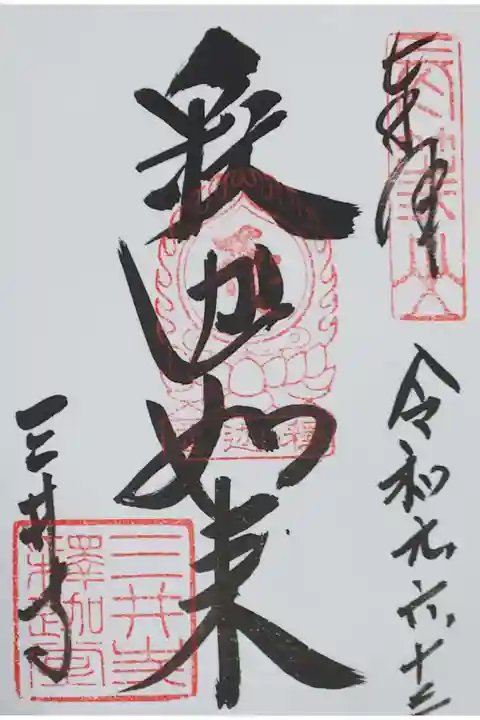 奉拝
長等山
令和元六十三
釋迦如来
釋迦
三井寺
三井寺
釋迦堂